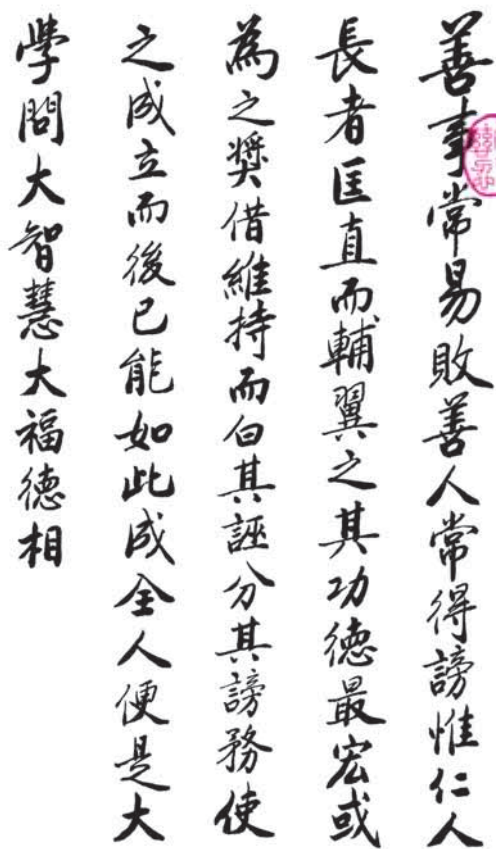 善事常易敗善人常得謗惟仁人
長者匡直而輔翼之其功德最宏或
為之奬借維持而白其誣分其謗務使
之成立而後已能如此成全人便是大
學問大智慧大福德相